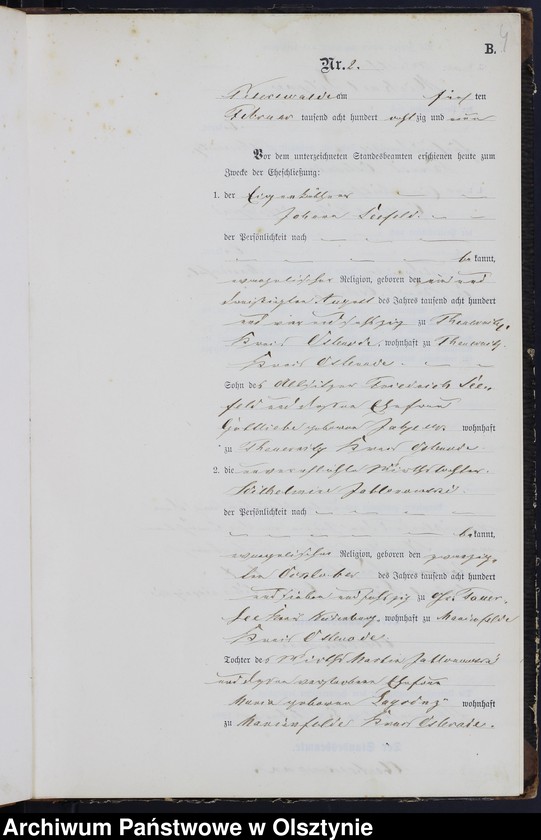 B. 4
Nr. 2.
Peterswalde am fünf ten
Februar tausend acht hundert achtzig und neun
Vor dem unterzeichneten Standesbeamten erschienen heute zum
Zwecke der Eheschließung:
1. der Eigenkäthner
Johann Seefeld.
der Persönlichkeit nach
bekannt,
evangelischer Religion, geboren den ein und
dreißigsten August des Jahres tausend acht hundert
und vier und sechszig zu
Kreis Osterode, wohnhaft zu
Kreis Osterode.
Sohn des Altsitzer Friedrich See-
feld und dessen Ehefrau
Gottliebe geborene wohnhaft
zu Kreis Osterode
2. die unverehelichte Wirthstochter
Wilhelmine Jablonowski.
der Persönlichkeit nach
bekannt,
evangelischer Religion, geboren den zwanzig-
sten October des Jahres tausend acht hundert
und sieben und sechszig zu
see Kreis wohnhaft zu Marienfelde
Kreis Osterode.
Tochter des Wirths Martin Jablonowski
und dessen verstorbenen Ehefrau
Maria geborenen wohnhaft
zu Marienfelde Kreis Osterode.
Archiwum Państwowe w Olsztynie